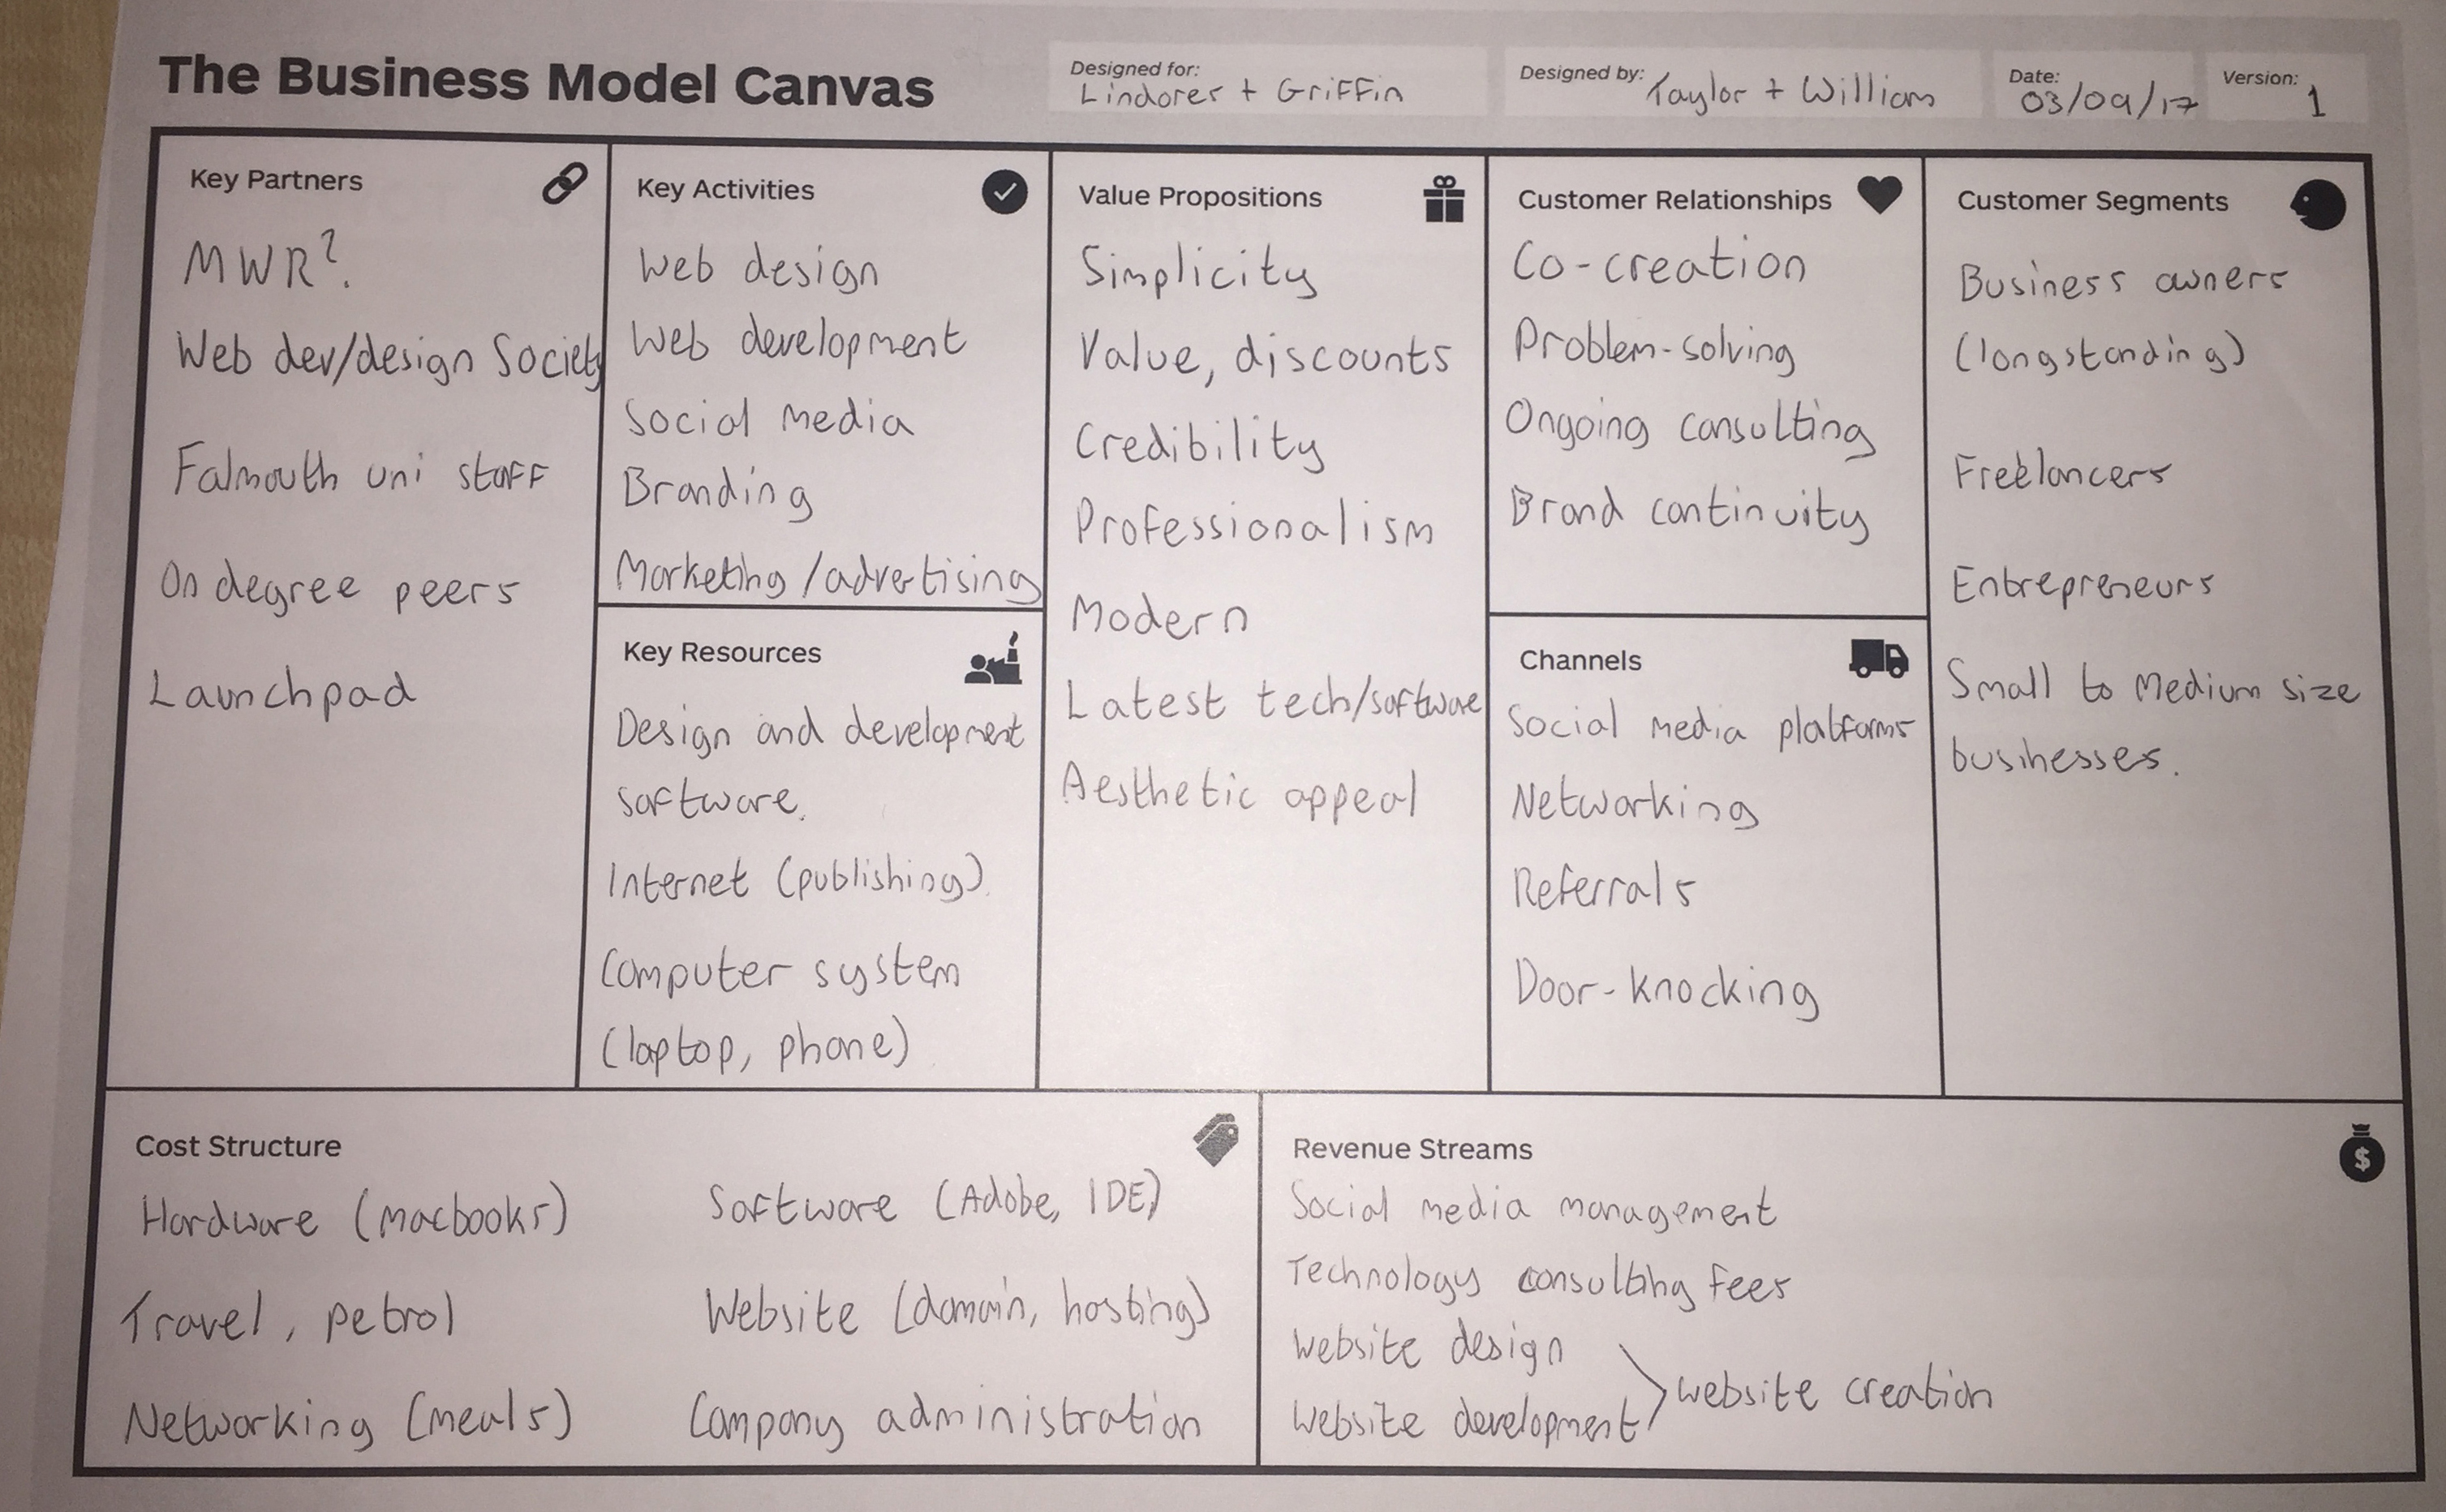 The Business Model Canvas
Designed for:
Lindores + Griffin
Designed by:
Taylor + William
Date:
03/09/17
Version:
1
Key Partners
MWR?.
Web dev/design Society
Falmouth uni staff
On degree peers
Launchpad
Key Activities
Web design
Web development
Social media
Branding
Marketing/advertising
Key Resources
Design and development
software.
Internet (publishing).
Computer system
(laptop, phone)
Value Propositions
Simplicity
Value, discounts
Credibility
Professionalism
Modern
Latest tech/software
Aesthetic appeal
Customer Relationships
Co-creation
Problem-solving
Ongoing consulting
Brand continuity
Channels
Social media platforms
Networking
Referrals
Door-knocking
Customer Segments
Business owners
(longstanding)
Freelancers
Entrepreneurs
Small to medium size
businesses.
Cost Structure
Hardware (macbooks)
Travel, petrol
Networking (meals)
Software (Adobe, IDE)
Website (domain, hosting)
Company administration
Revenue Streams
Social media management
Technology consulting fees
Website design
Website development
website creation